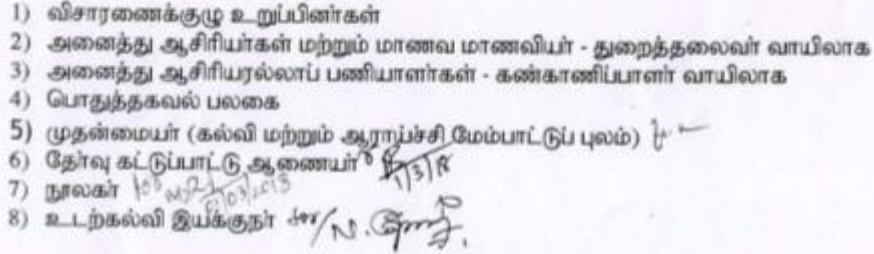 1) விசாரணைக்குழு உறுப்பினர்கள்
2) அனைத்து ஆசிரியர்கள் மற்றும் மாணவ மாணவியர் - துறைத்தலைவர் வாயிலாக
3) அனைத்து ஆசிரியரல்லாப் பணியாளர்கள் - கண்காணிப்பாளர் வாயிலாக
4) பொதுத்தகவல் பலகை
5) முதன்மையர் (கல்வி மற்றும் ஆராய்ச்சி மேம்பாட்டுப் புலம்)
6) தேர்வு கட்டுப்பாட்டு ஆணையர் 1/3/18
7) நூலகர்
8) உடற்கல்வி இயக்குநர்